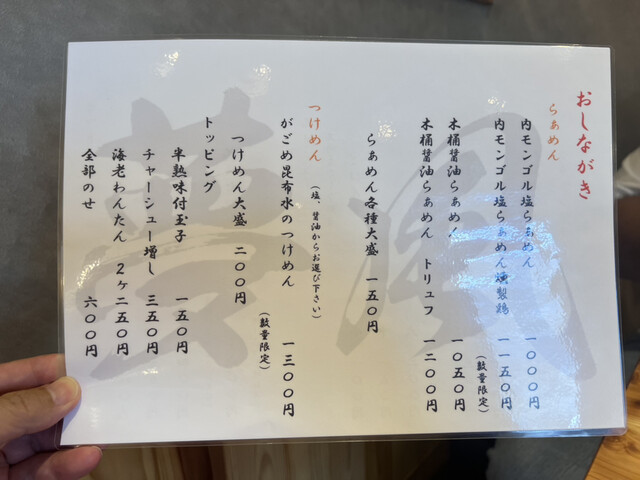 おしながき
らぁめん
内モンゴル塩らぁめん 一〇〇〇円
内モンゴル塩らぁめん燻製鶏 一一五〇円
(数量限定)
木桶醤油らぁめん 一〇五〇円
木桶醤油らぁめん トリュフ 一二〇〇円
らぁめん各種大盛 一五〇円
つけめん (塩、醤油からお選び下さい)
がごめ昆布水のつけめん 一三〇〇円
(数量限定)
つけめん大盛 二〇〇円
トッピング
半熟味付玉子 一五〇円
チャーシュー増し 三五〇円
海老わんたん 2ヶ二五〇円
全部のせ 六〇〇円
夢風